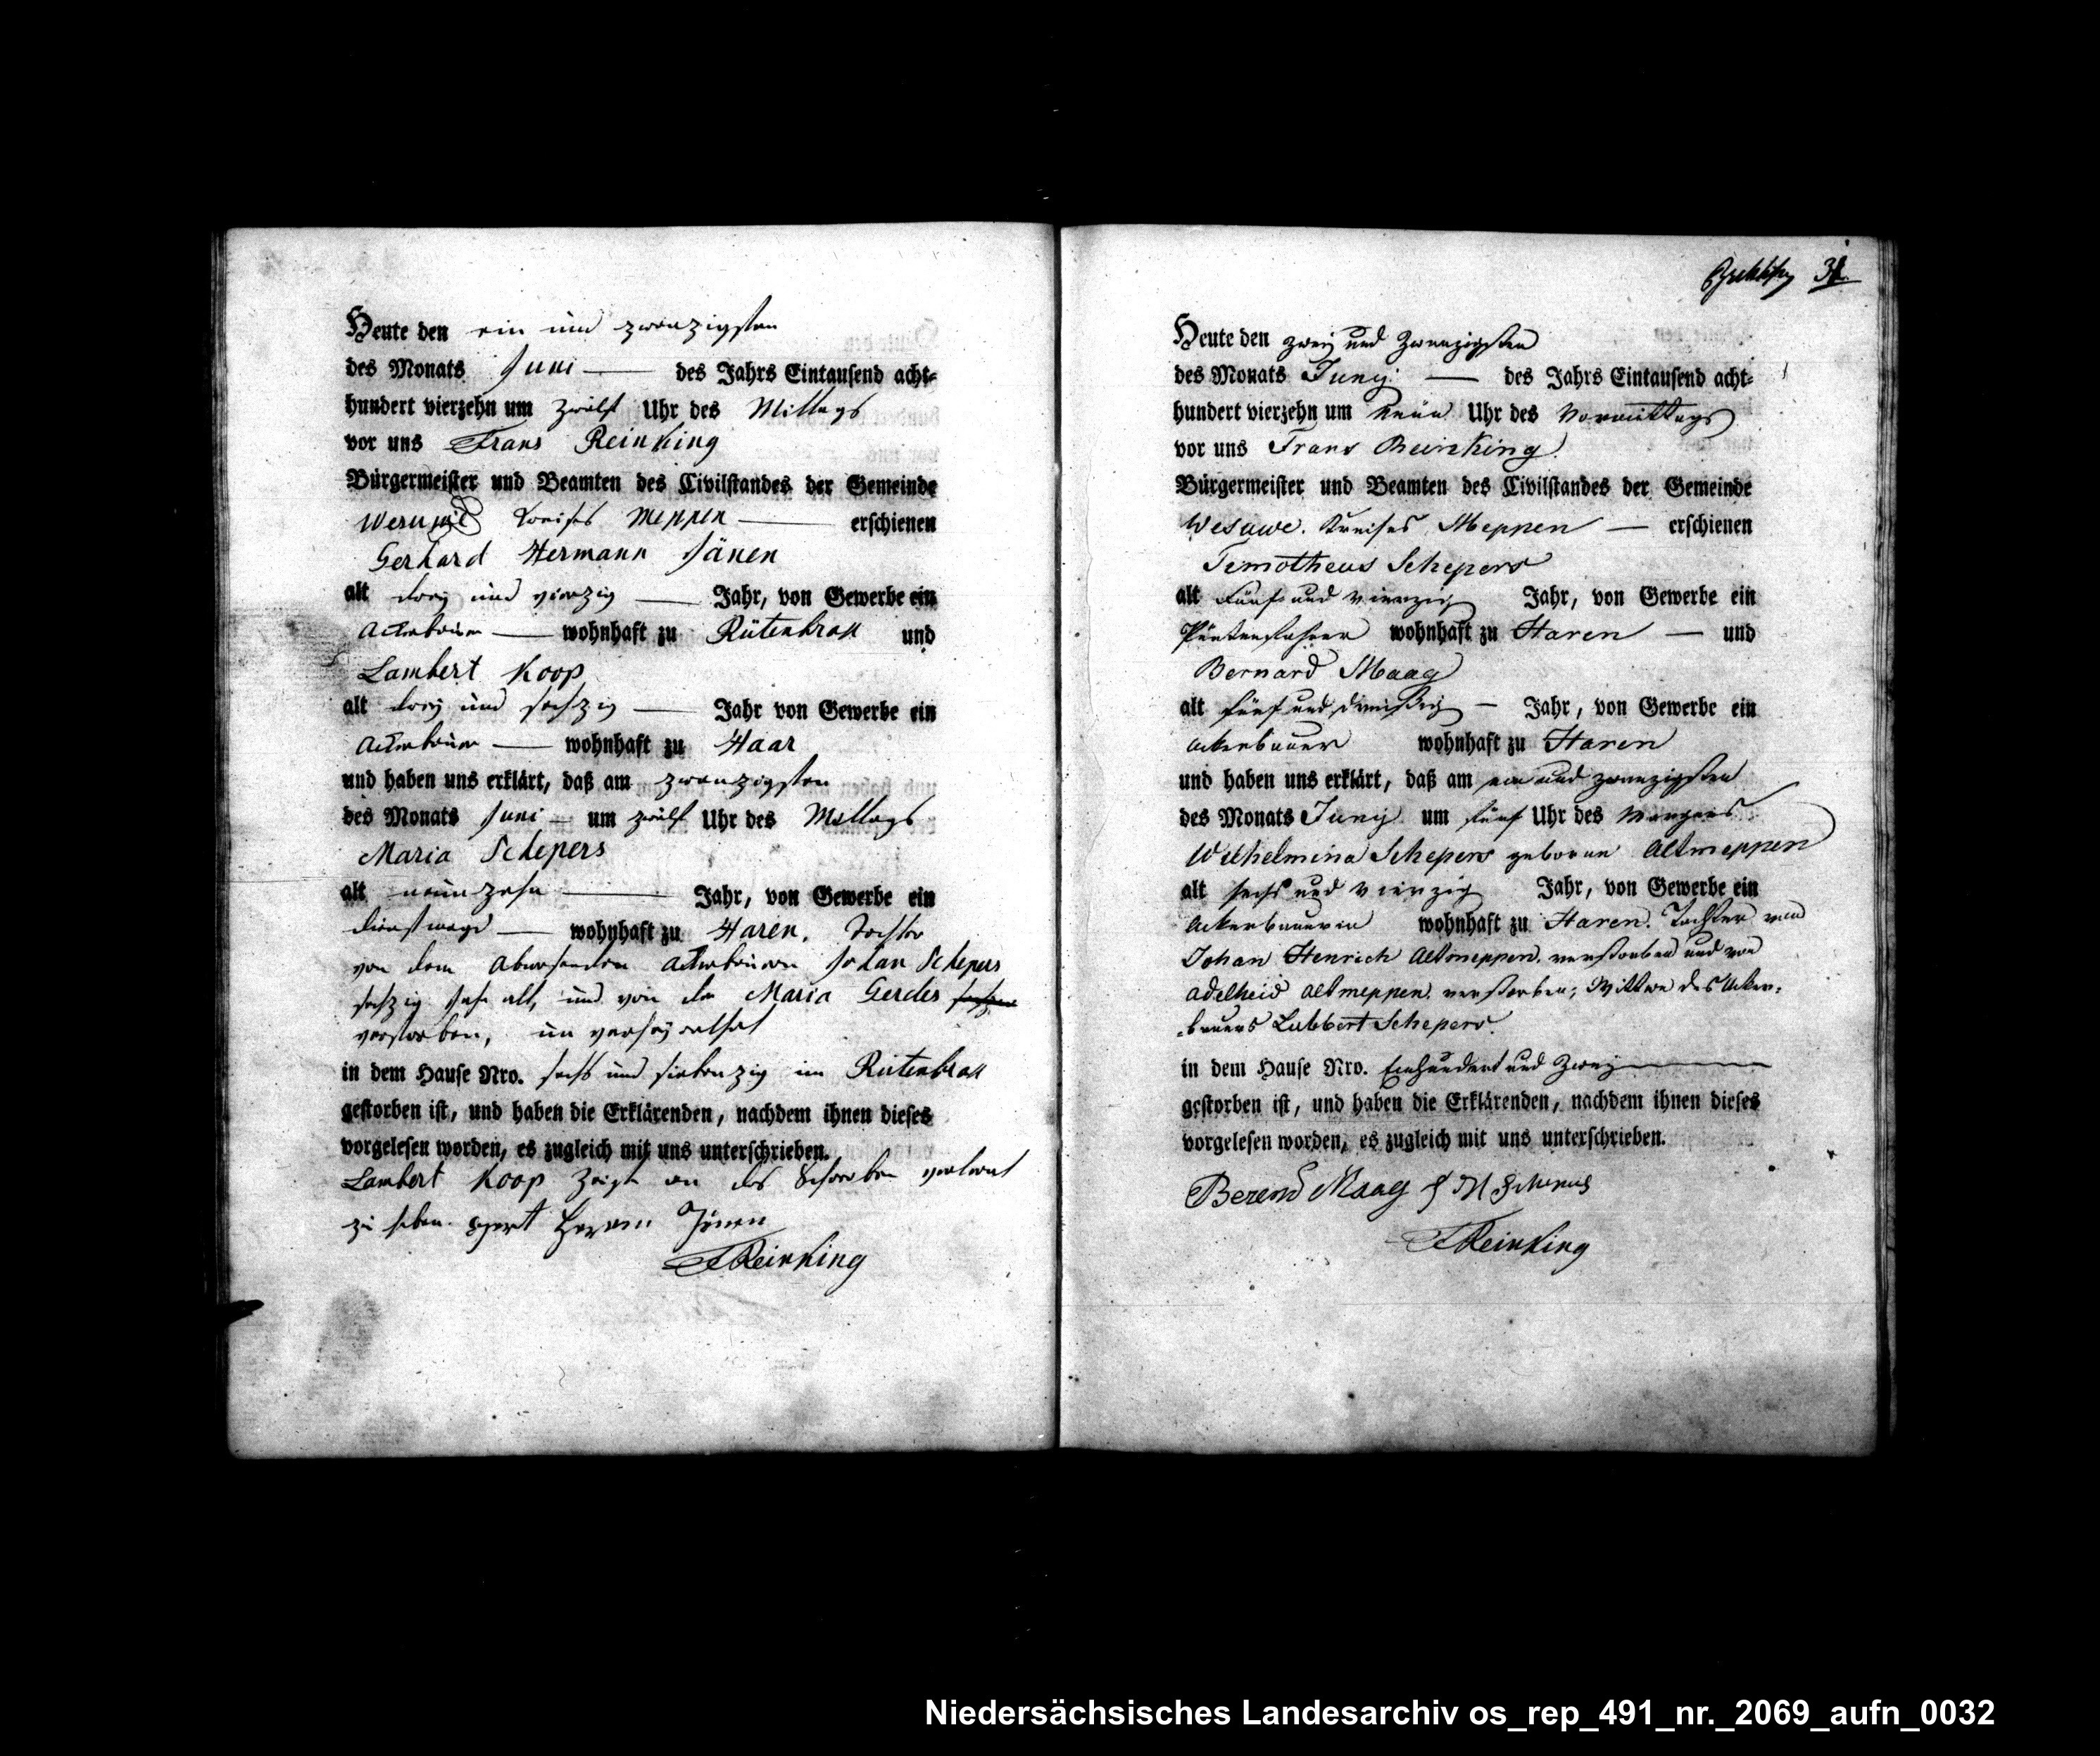 Heute den ein und zwanzigsten
des Monats Juni des Jahrs Eintausend acht-
hundert vierzehn um zwölf Uhr des Mittags
vor uns Frans Reinking
Bürgermeister und Beamten des Civilstandes der Gemeinde
Wesuwe Kreises Meppen erschienen
Gerhard Hermann Jänen
alt drey und vierzig Jahr, von Gewerbe ein
Ackerbauer wohnhaft zu Rütenbrock und
Lambert Koop
alt drey und sechzig Jahr von Gewerbe ein
Ackerbauer wohnhaft zu Haar
und haben uns erklärt, daß am zwanzigsten
des Monats Juni um zwölf Uhr des Mittags
Maria Schepers
alt neunzehn Jahr, von Gewerbe ein
Dienstmagd wohnhaft zu Haren, Tochter
von dem abwesenden Ackerbauern Johan Schepers
sechzig Jahr alt, und von der Maria Gerdes
verstorben, un verheyrathet
in dem Hause Nro. sechs und siebenzig in Rütenbrock
gestorben ist, und haben die Erklärenden, nachdem ihnen dieses
vorgelesen worden, es zugleich mit uns unterschrieben.
Lambert Koop zeigte an das Schreiben verlernt
zu haben. Gert Herm Jänen
F Reinking
31.
Heute den zwey und zwanzigsten
des Monats Juny des Jahrs Eintausend acht-
hundert vierzehn um neun Uhr des Vormittags
vor uns Frans Reinking
Bürgermeister und Beamten des Civilstandes der Gemeinde
Wesuwe. Kreises Meppen erschienen
Timotheus Schepers
alt Fünf und vierzig Jahr, von Gewerbe ein
Püntenfahrer wohnhaft zu Haren und
Bernard Maag
alt fünf und dreißig Jahr, von Gewerbe ein
Ackerbauer wohnhaft zu Haren
und haben uns erklärt, daß am ein und zwanzigsten
des Monats Juny um fünf Uhr des Morgens
Wilhelmina Schepers geboren Altmeppen
alt sechs und vierzig Jahr, von Gewerbe ein
Ackerbauerin wohnhaft zu Haren. Tochter von
Johan Henrich Altmeppen, verstorben und von
Adelheid Altmeppen, verstorben; Wittwe des Acker-
-bauers Lubbert Schepers.
in dem Hause Nro. Einhundert und Zwey
gestorben ist, und haben die Erklärenden, nachdem ihnen dieses
vorgelesen worden, es zugleich mit uns unterschrieben.
Berend Maag Schepers
F Reinking
Niedersächsisches Landesarchiv os_rep_491_nr._2069_aufn_0032